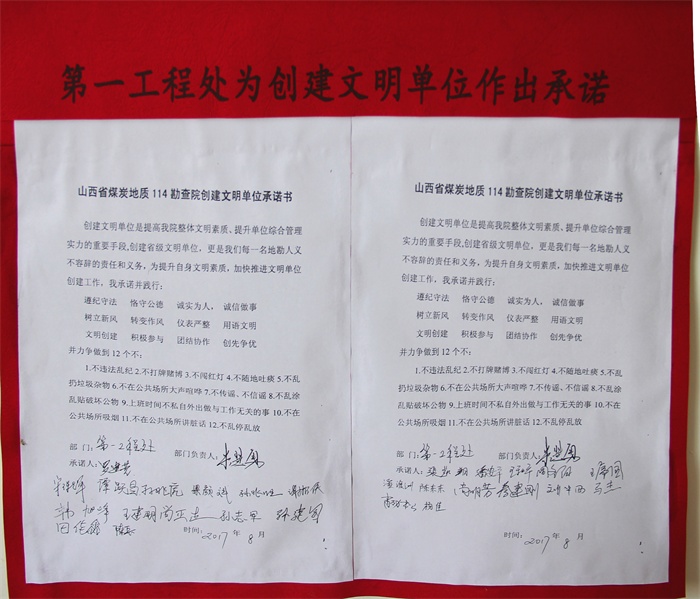 第一工程处为创建文明单位作出承诺
山西省煤炭地质 114 勘查院创建文明单位承诺书
创建文明单位是提高我院整体文明素质、提升单位综合管理
实力的重要手段,创建省级文明单位，更是我们每一名地勘人义
不容辞的责任和义务，为提升自身文明素质，加快推进文明单位
创建工作，我承诺并践行：
遵纪守法 恪守公德 诚实为人， 诚信做事
树立新风 转变作风 仪表严整 用语文明
文明创建 积极参与 团结协作 创先争优
并力争做到 12 个不：
1.不违法乱纪 2.不打牌赌博 3.不闯红灯 4.不随地吐痰 5.不乱
扔垃圾杂物 6.不在公共场所大声喧哗 7.不传谣、不信谣 8.不乱涂
乱贴破坏公物 9.上班时间不私自外出做与工作无关的事 10.不在
公共场所吸烟 11.不在公共场所讲脏话 12.不乱停乱放
部 门：第一工程处 部门负责人：
承诺人：
王建明
时间：2017 年 8 月
山西省煤炭地质 114 勘查院创建文明单位承诺书
创建文明单位是提高我院整体文明素质、提升单位综合管理
实力的重要手段,创建省级文明单位，更是我们每一名地勘人义
不容辞的责任和义务，为提升自身文明素质，加快推进文明单位
创建工作，我承诺并践行：
遵纪守法 恪守公德 诚实为人， 诚信做事
树立新风 转变作风 仪表严整 用语文明
文明创建 积极参与 团结协作 创先争优
并力争做到 12 个不：
1.不违法乱纪 2.不打牌赌博 3.不闯红灯 4.不随地吐痰 5.不乱
扔垃圾杂物 6.不在公共场所大声喧哗 7.不传谣、不信谣 8.不乱涂
乱贴破坏公物 9.上班时间不私自外出做与工作无关的事 10.不在
公共场所吸烟 11.不在公共场所讲脏话 12.不乱停乱放
部 门：第一工程处 部门负责人：
承诺人：
马杰
时间：2017 年 8 月